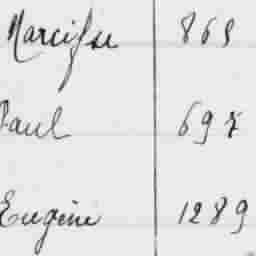 Narcisse 865
Paul 697
Eugène 1289